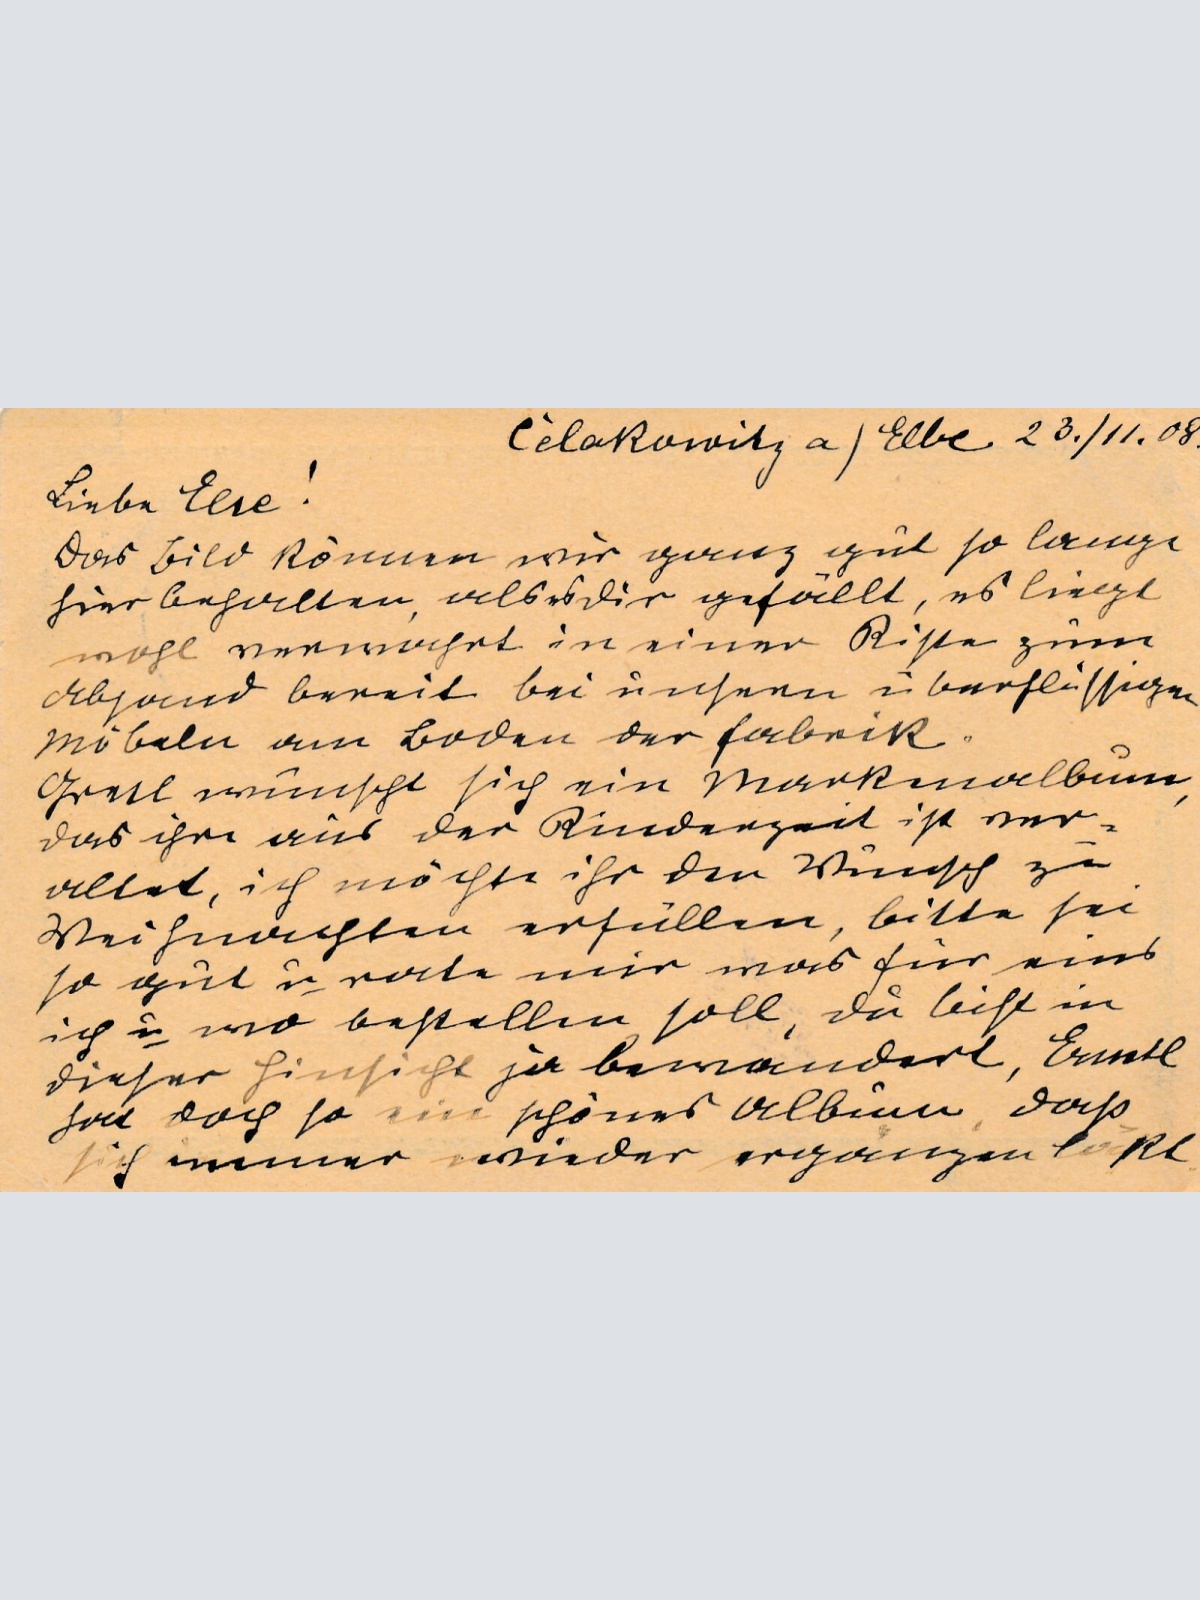 Čelakowitz a/Elbe 23./11. 08.
Liebe Else!
Das Bild können wir ganz gut so lange
hier behalten, als es dir gefällt, es liegt
wohl verwahrt in einer Kiste zum
Absand bereit bei unsern überflüssigen
Möbeln am Boden der Fabrik.
Gretl wünscht sich ein Markenalbum,
das ihre aus der Kinderzeit ist ver-
altet, ich möchte ihr den Wunsch zu
Weihnachten erfüllen, bitte sei
so gut u. rate mir was für eins
ich u. wo bestellen soll, du bist in
dieser Hinsicht ja bewandert, Ernstl
hat doch so ein schönes Album, daß
sich immer wieder ergänzen läßt